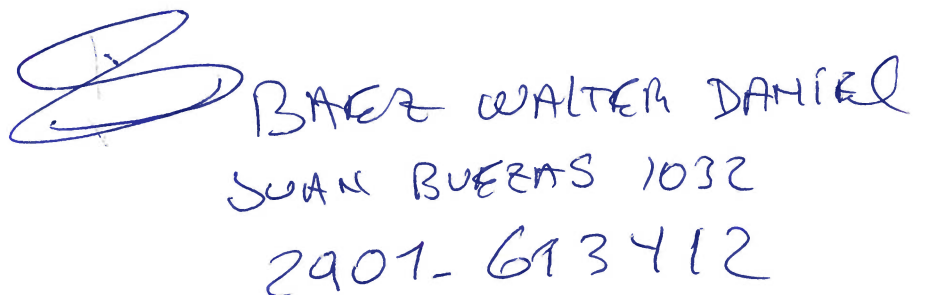 BAEZ WALTER DANIEL
JUAN BUEZAS 1032
2901-613412